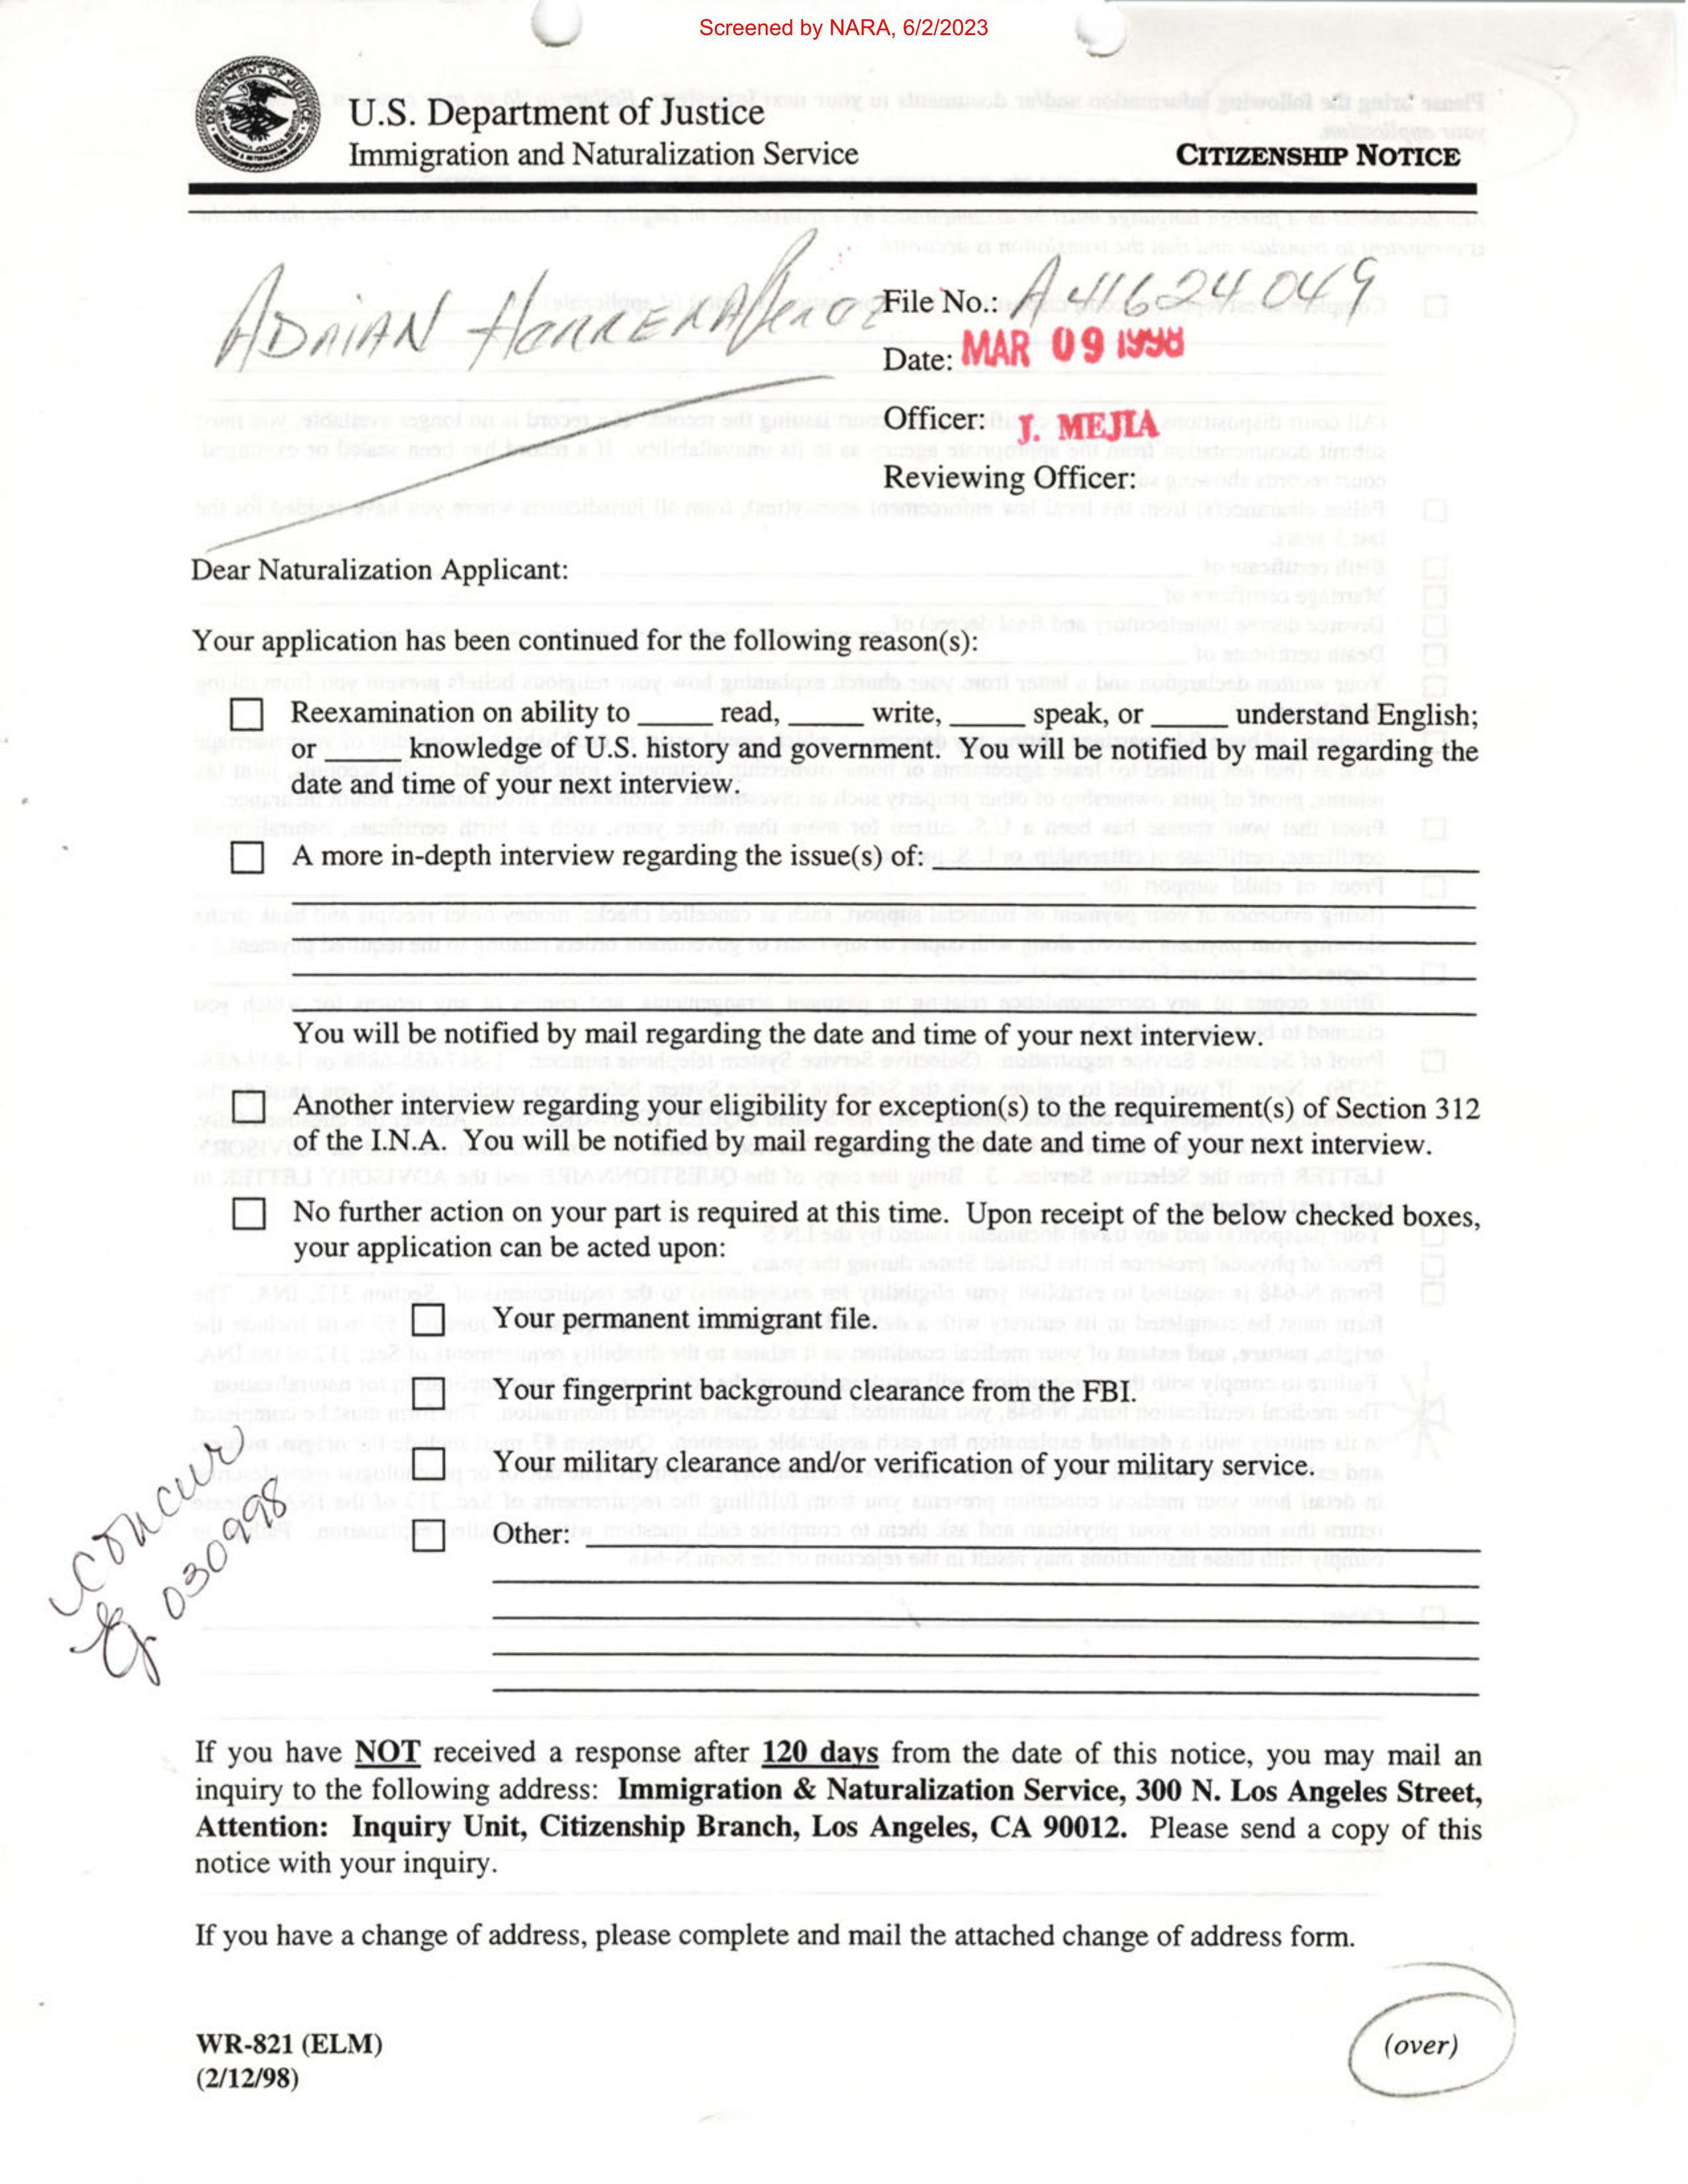 Screened by NARA, 6/2/2023
U.S. Department of Justice
Immigration and Naturalization Service
CITIZENSHIP NOTICE
ADRIAN
File No.: A41624049
Date: MAR 09 1998
Officer: J. MEJIA
Reviewing Officer:
Dear Naturalization Applicant:
Your application has been continued for the following reason(s):
Reexamination on ability to _____ read, _____ write, _____ speak, or _____ understand English;
or _____ knowledge of U.S. history and government. You will be notified by mail regarding the
date and time of your next interview.
A more in-depth interview regarding the issue(s) of:
You will be notified by mail regarding the date and time of your next interview.
Another interview regarding your eligibility for exception(s) to the requirement(s) of Section 312
of the I.N.A. You will be notified by mail regarding the date and time of your next interview.
No further action on your part is required at this time. Upon receipt of the below checked boxes,
your application can be acted upon:
Your permanent immigrant file.
Your fingerprint background clearance from the FBI.
Your military clearance and/or verification of your military service.
Other:
concur
030998
If you have NOT received a response after 120 days from the date of this notice, you may mail an
inquiry to the following address: Immigration & Naturalization Service, 300 N. Los Angeles Street,
Attention: Inquiry Unit, Citizenship Branch, Los Angeles, CA 90012. Please send a copy of this
notice with your inquiry.
If you have a change of address, please complete and mail the attached change of address form.
WR-821 (ELM)
(2/12/98)
(over)